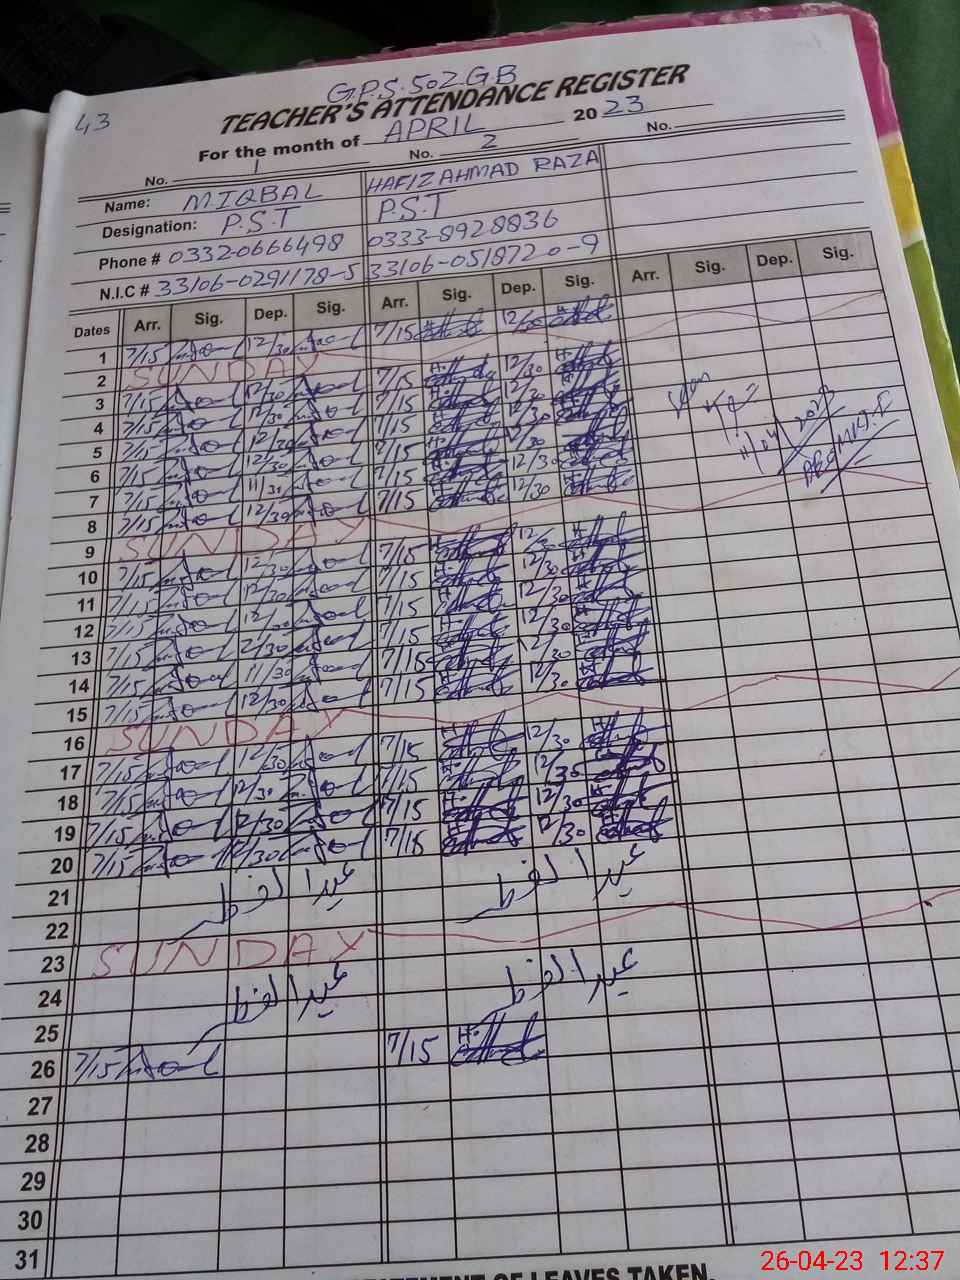 43
G.P.S. 502 GB
TEACHER'S ATTENDANCE REGISTER
For the month of APRIL 2023
No. 1 No. 2 No.
Name: M.IQBAL HAFIZ AHMAD RAZA
Designation: P.S.T P.S.T
Phone # 0332-0666498 0333-8928836
N.I.C # 33106-0291178-5 33106-0518720-9
Dates Arr. Sig. Dep. Sig. Arr. Sig. Dep. Sig. Arr. Sig. Dep. Sig.
1 7/15 12/30 7/15 12/30
2 SUNDAY
3 7/15 12/30 7/15 12/30
4 7/15 12/30 7/15 12/30
5 7/15 12/30 7/15 12/30
6 7/15 12/30 7/15 12/30
7 7/15 11/30 7/15 12/30
8 7/15 12/30 7/15 12/30
9 SUNDAY
10 7/15 12/30 7/15 12/30
11 7/15 12/30 7/15 12/30
12 7/15 7/15 12/30
13 7/15 12/30 7/15 12/30
14 7/15 11/30 7/15 12/30
15 7/15 12/30 7/15 12/30
16 SUNDAY
17 7/15 12/30 7/15 12/30
18 7/15 12/30 7/15 12/30
19 7/15 12/30 7/15 12/30
20 7/15 12/30 7/15 12/30
21 عید الفطر عید الفطر
22
23 SUNDAY
24 عید الفطر عید الفطر
25
26 7/15 7/15
27
28
29
30
31
OF LEAVES TAKEN.
26-04-23 12:37